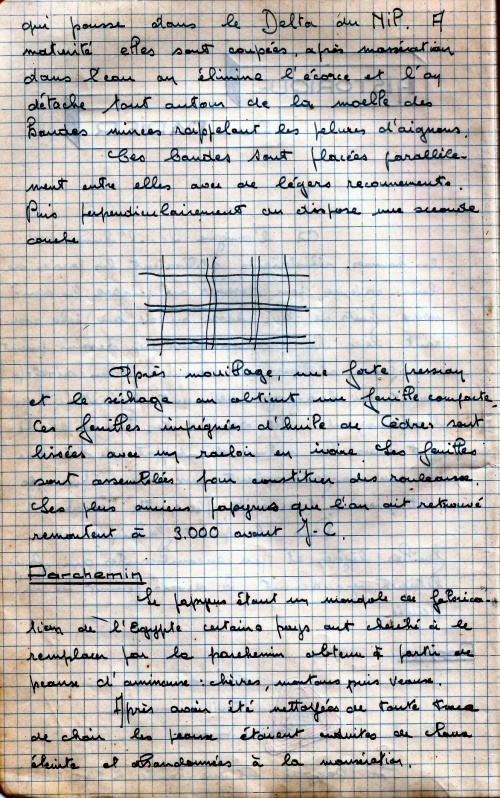 qui pousse dans le Delta du Nil. A
maturité elles sont coupées, après massération
dans l'eau on élimine l'écorce et l'on
détache tout autour de la moelle des
Bandes minces rappelant les pelures d'oignons.
Ces bandes sont placées parallèle-
ment entre elles avec de légers recouvrements.
Puis perpendiculairement on dispose une seconde
couche
Après mouillage, une forte pression
et le séchage on obtient une feuille compacte.
Ces feuilles imprégnées d'huile de Cèdres sont
lissées avec un racloir en ivoire Les feuilles
sont assemblées pour constituer des rouleaux.
Les plus anciens papyrus que l'on ait retrouvé
remontent à 3.000 avant J-C.
Parchemin
Le papyrus étant un monopole de fabrica-
tion de l'Egypte certains pays ont cherché à le
remplacer par le parchemin obtenu à partir de
peaux d'animaux : chèvres, moutons puis veaux.
Après avoir été nettoyées de toute trace
de chair les peaux étaient enduites de chaux
éteinte et abandonnées à la macération.